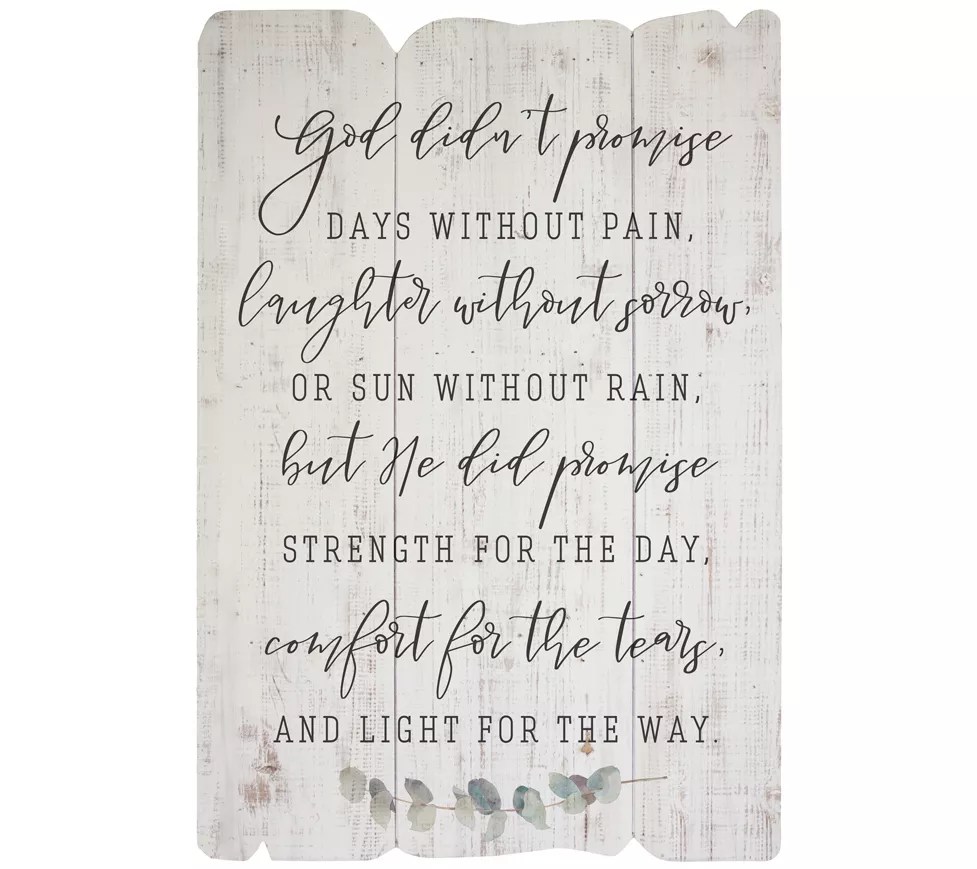 God didn't promise
DAYS WITHOUT PAIN,
laughter without sorrow,
OR SUN WITHOUT RAIN,
but He did promise
STRENGTH FOR THE DAY,
comfort for the tears,
AND LIGHT FOR THE WAY.